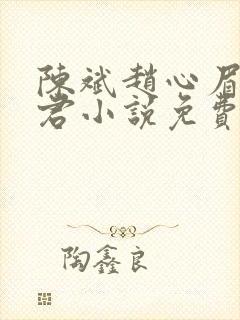 陳斌趙心眉
君小說免費
陶鑫良